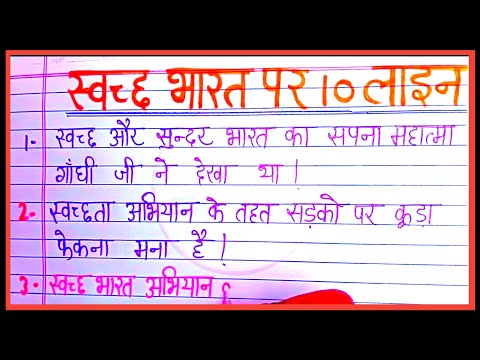 स्वच्छ भारत पर १० लाइन
1- स्वच्छ और सुन्दर भारत का सपना महात्मा
गाँधी जी ने देखा था।
2- स्वच्छता अभियान के तहत सड़को पर कूड़ा
फेकना मना है।
3- स्वच्छ भारत अभियान